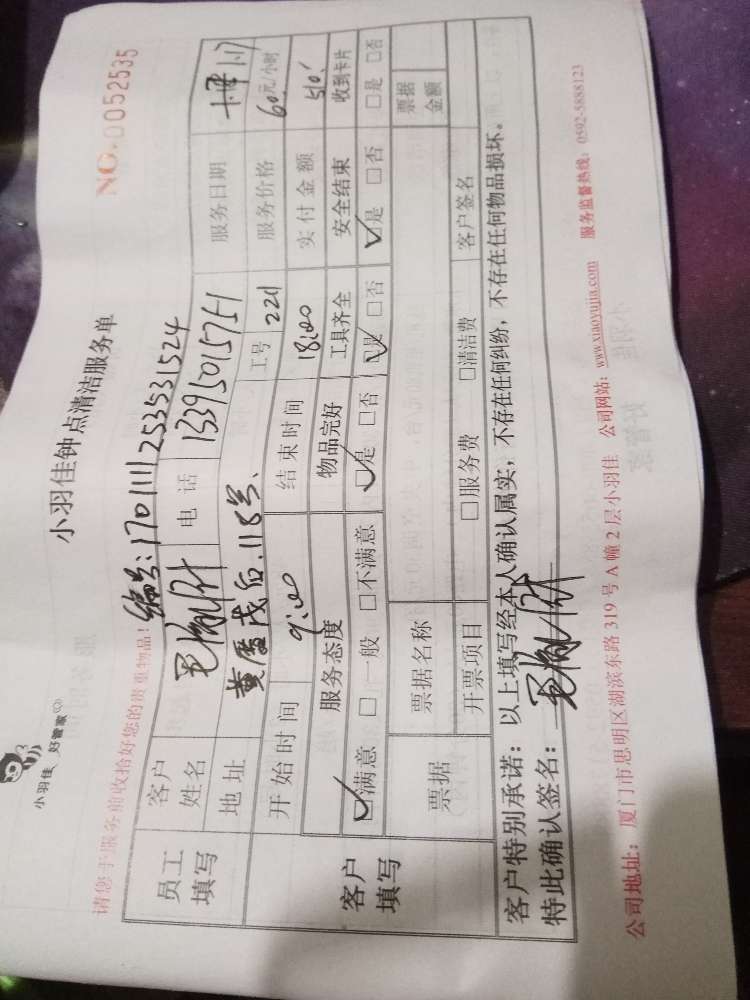 小羽佳 好管家
小羽佳钟点清洁服务单
NO.0052535
请您于服务前收拾好您的贵重物品！ 编号：170111253531524
员工填写 客户姓名 电话 13395015751 服务日期
地址 118号、 工号 221 服务价格 60元/小时
客户填写 开始时间 9:00 结束时间 18:00 实付金额 510
服务态度 物品完好 工具齐全 安全结束 收到卡片
☑满意 □一般 □不满意 ☑是 □否 ☑是 □否 ☑是 □否 □是 □否
票据 票据名称 票据金额
开票项目 □服务费 □清洁费 客户签名
客户特别承诺：以上填写经本人确认属实，不存在任何纠纷，不存在任何物品损坏。
特此确认签名：
公司地址：厦门市思明区湖滨东路319号A幢2层小羽佳 公司网站：www.xiaoyujia.com 服务监督热线：0592-5888123